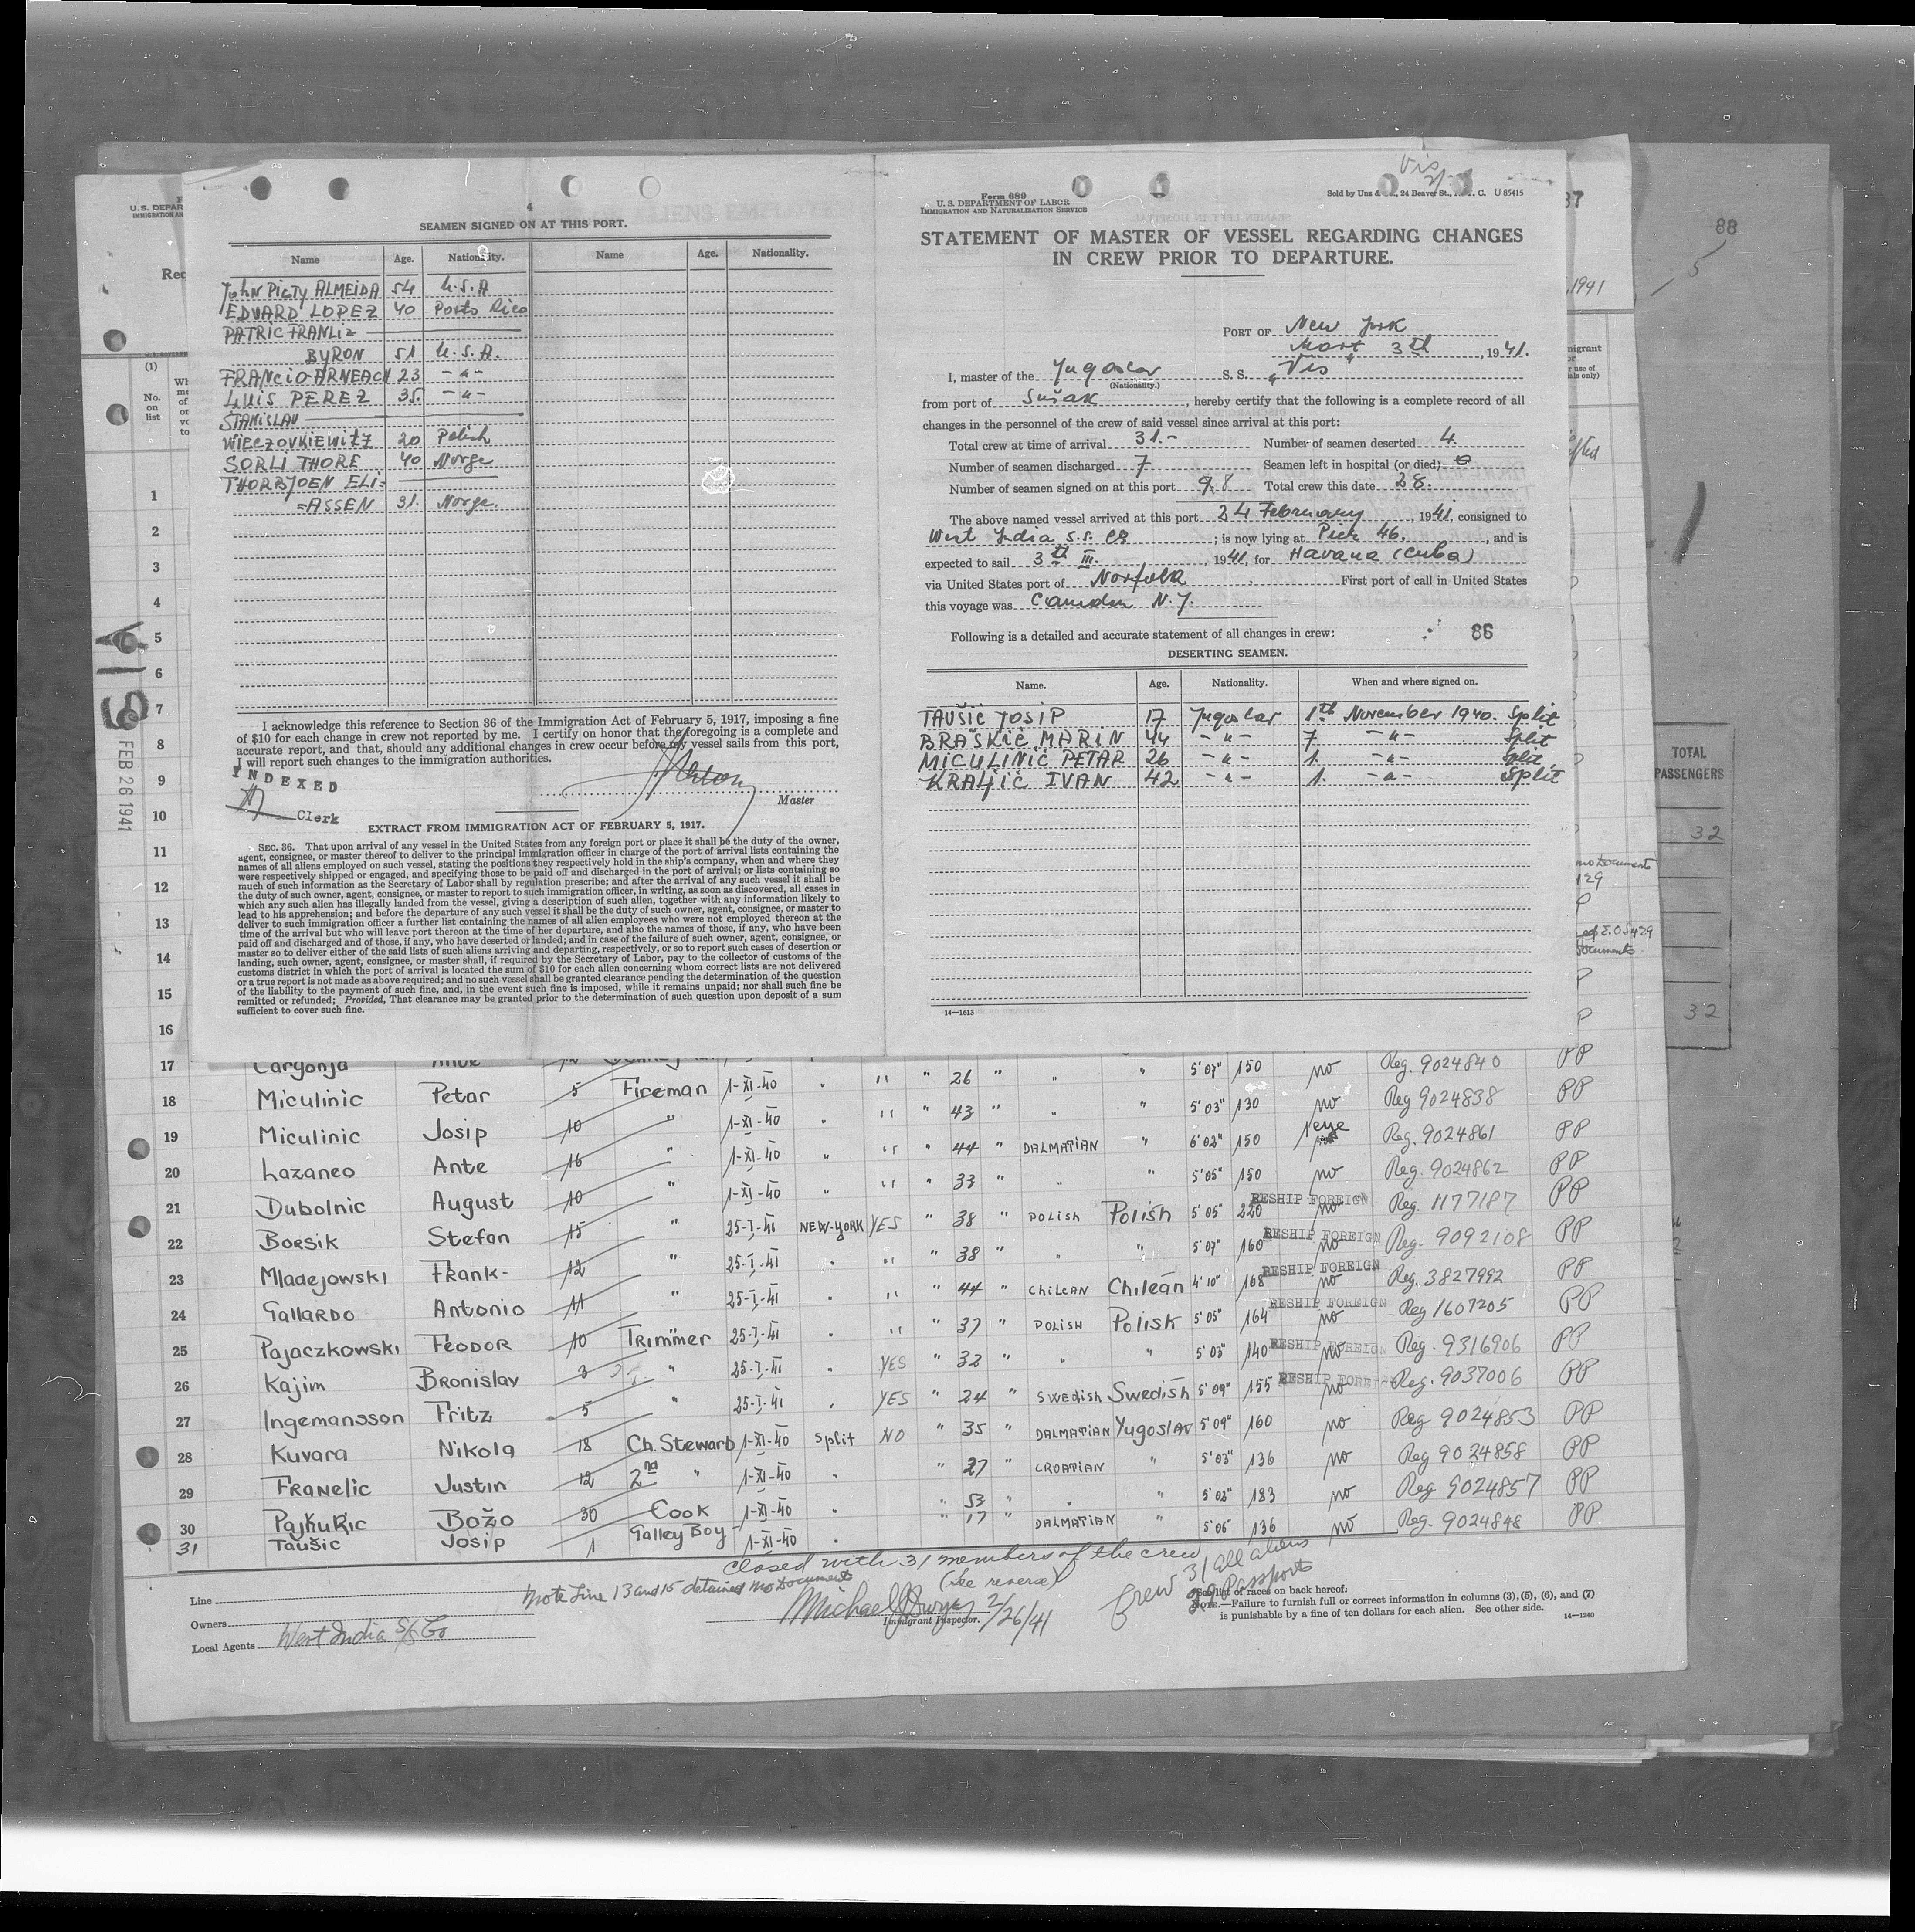 4
SEAMEN SIGNED ON AT THIS PORT.
Name Age. Nationality. Name Age. Nationality.
John Picty ALMEIDA 54 U.S.A
EDVARD LOPEZ 40 Porto Rico
PATRIC FRANLi=
BYRON 51 U.S.A.
FRANCiO ARNEACH 23 -"-
LUIS PEREZ 35. -"-
STANiSLAV
WIECZOVKIEWITZ 20 Polish
SORLI THORE 40 Norge
THORBJOEN ELI=
=ASSEN 31. Norge.
I acknowledge this reference to Section 36 of the Immigration Act of February 5, 1917, imposing a fine
of $10 for each change in crew not reported by me. I certify on honor that the foregoing is a complete and
accurate report, and that, should any additional changes in crew occur before my vessel sails from this port,
I will report such changes to the immigration authorities.
INDEXED
Clerk
Master
EXTRACT FROM IMMIGRATION ACT OF FEBRUARY 5, 1917.
SEC. 36. That upon arrival of any vessel in the United States from any foreign port or place it shall be the duty of the owner,
agent, consignee, or master thereof to deliver to the principal immigration officer in charge of the port of arrival lists containing the
names of all aliens employed on such vessel, stating the positions they respectively hold in the ship's company, when and where they
were respectively shipped or engaged, and specifying those to be paid off and discharged in the port of arrival; or lists containing so
much of such information as the Secretary of Labor shall by regulation prescribe; and after the arrival of any such vessel it shall be
the duty of such owner, agent, consignee, or master to report to such immigration officer, in writing, as soon as discovered, all cases in
which any such alien has illegally landed from the vessel, giving a description of such alien, together with any information likely to
lead to his apprehension; and before the departure of any such vessel it shall be the duty of such owner, agent, consignee, or master to
deliver to such immigration officer a further list containing the names of all alien employees who were not employed thereon at the
time of the arrival but who will leave port thereon at the time of her departure, and also the names of those, if any, who have been
paid off and discharged and of those, if any, who have deserted or landed; and in case of the failure of such owner, agent, consignee, or
master so to deliver either of the said lists of such aliens arriving and departing, respectively, or so to report such cases of desertion or
landing, such owner, agent, consignee, or master shall, if required by the Secretary of Labor, pay to the collector of customs of the
customs district in which the port of arrival is located the sum of $10 for each alien concerning whom correct lists are not delivered
or a true report is not made as above required; and no such vessel shall be granted clearance pending the determination of the question
of the liability to the payment of such fine, and, in the event such fine is imposed, while it remains unpaid; nor shall such fine be
remitted or refunded; Provided, That clearance may be granted prior to the determination of such question upon deposit of a sum
sufficient to cover such fine.
Vis
Form 689
U. S. DEPARTMENT OF LABOR
IMMIGRATION AND NATURALIZATION SERVICE
Sold by Unz & , 24 Beaver St., C. U 85415
STATEMENT OF MASTER OF VESSEL REGARDING CHANGES
IN CREW PRIOR TO DEPARTURE.
PORT OF New York
Mart 3th , 1941.
I, master of the Yugoslav S. S. "Vis"
(Nationality.)
from port of Sušak , hereby certify that the following is a complete record of all
changes in the personnel of the crew of said vessel since arrival at this port:
Total crew at time of arrival 31.- Number of seamen deserted 4
Number of seamen discharged 7 Seamen left in hospital (or died) 0
Number of seamen signed on at this port 8 Total crew this date 28.
The above named vessel arrived at this port 24 February , 1941, consigned to
West India S.S. Co ; is now lying at Pier 46. , and is
expected to sail 3th III. , 1941, for Havana (Cuba)
via United States port of Norfolk . First port of call in United States
this voyage was Camden N.J.
Following is a detailed and accurate statement of all changes in crew: 86
DESERTING SEAMEN.
Name. Age. Nationality. When and where signed on.
TAUŠIĆ JOSIP 17 Yugoslav 1th November 1940. Split
BRAŠKIĆ MARIN 44 -"- 7 -"- Split
MICULINIĆ PETAR 26 -"- 1. -"- Split
KRALJIĆ IVAN 42 -"- 1. -"- Split
14—1613
U. S. DEPAR
IMMIGRATION AN
Rec
(1)
No.
on
list
FEB 26 1941
1
2
3
4
5
6
7
8
9
10
11
12
13
14
15
16
37
, 1941
88
5
TOTAL
PASSENGERS
32
32
no Documents
129
Documents
17 Cargonja Ante
18 Miculinic Petar 5 Fireman 1-XI-40 " " " 26 " " " 5'07" 150 no Reg. 9024840 PP
19 Miculinic Josip 10 " 1-XI-40 " " " 43 " " " 5'03" 130 no Reg 9024838 PP
20 Lazaneo Ante 16 " 1-XI-40 " " " 44 " DALMATIAN " 6'02" 150 Reg. 9024861 PP
21 Dubolnic August 10 " 1-XI-40 " " " 33 " " " 5'05" 150 no Reg. 9024862 PP
22 Borsik Stefan 15 " 25-I-41 NEW-YORK YES " 38 " POLISH Polish 5'05" 220 RESHIP FOREIGN no Reg. 1177187 PP
23 Mladejowski Frank- 12 " 25-I-41 " " " 38 " " " 5'07" 160 RESHIP FOREIGN no Reg. 9092108 PP
24 GALLARDO Antonio 11 " 25-I-41 " " " 44 " CHILEAN Chilean 4'10" 168 RESHIP FOREIGN no Reg. 3827992 PP
25 Pajaczkowski FEODOR 10 TRIMMER 25-I-41 " " " 37 " POLISH Polish 5'05" 164 RESHIP FOREIGN no Reg 1607205 PP
26 Kajim Bronislav 3 " 25-I-41 " YES " 32 " " " 5'03" 140 RESHIP FOREIGN no Reg. 9316906 PP
27 Ingemansson Fritz 5 " 25-I-41 " YES " 24 " SWEDISH Swedish 5'09" 155 RESHIP FOREIGN no Reg. 9037006 PP
28 Kuvara Nikola 18 Ch. Steward 1-XI-40 Split NO " 35 " DALMATIAN Yugoslav 5'09" 160 no Reg 9024853 PP
29 FRANELIC Justin 12 2nd " 1-XI-40 " " 27 " CROATIAN " 5'03" 136 no Reg 9024858 PP
30 Pajkuric Božo 30 Cook 1-XI-40 " " 53 " " " 5'02" 183 no Reg 9024857 PP
31 Taušic Josip 1 Galley Boy 1-XI-40 " " 17 " DALMATIAN " 5'06" 136 no Reg. 9024848 PP
Closed with 31 members of the crew
(see reverse)
Note Line 13 and 15 detained No Documents
Crew 31 all aliens
Passports
Line
Owners
Local Agents West India S/S Co
Michael J Dwyer 2/26/41
Immigrant Inspector.
See list of races on back hereof.
NOTE.—Failure to furnish full or correct information in columns (3), (5), (6), and (7)
is punishable by a fine of ten dollars for each alien. See other side.
14—1240